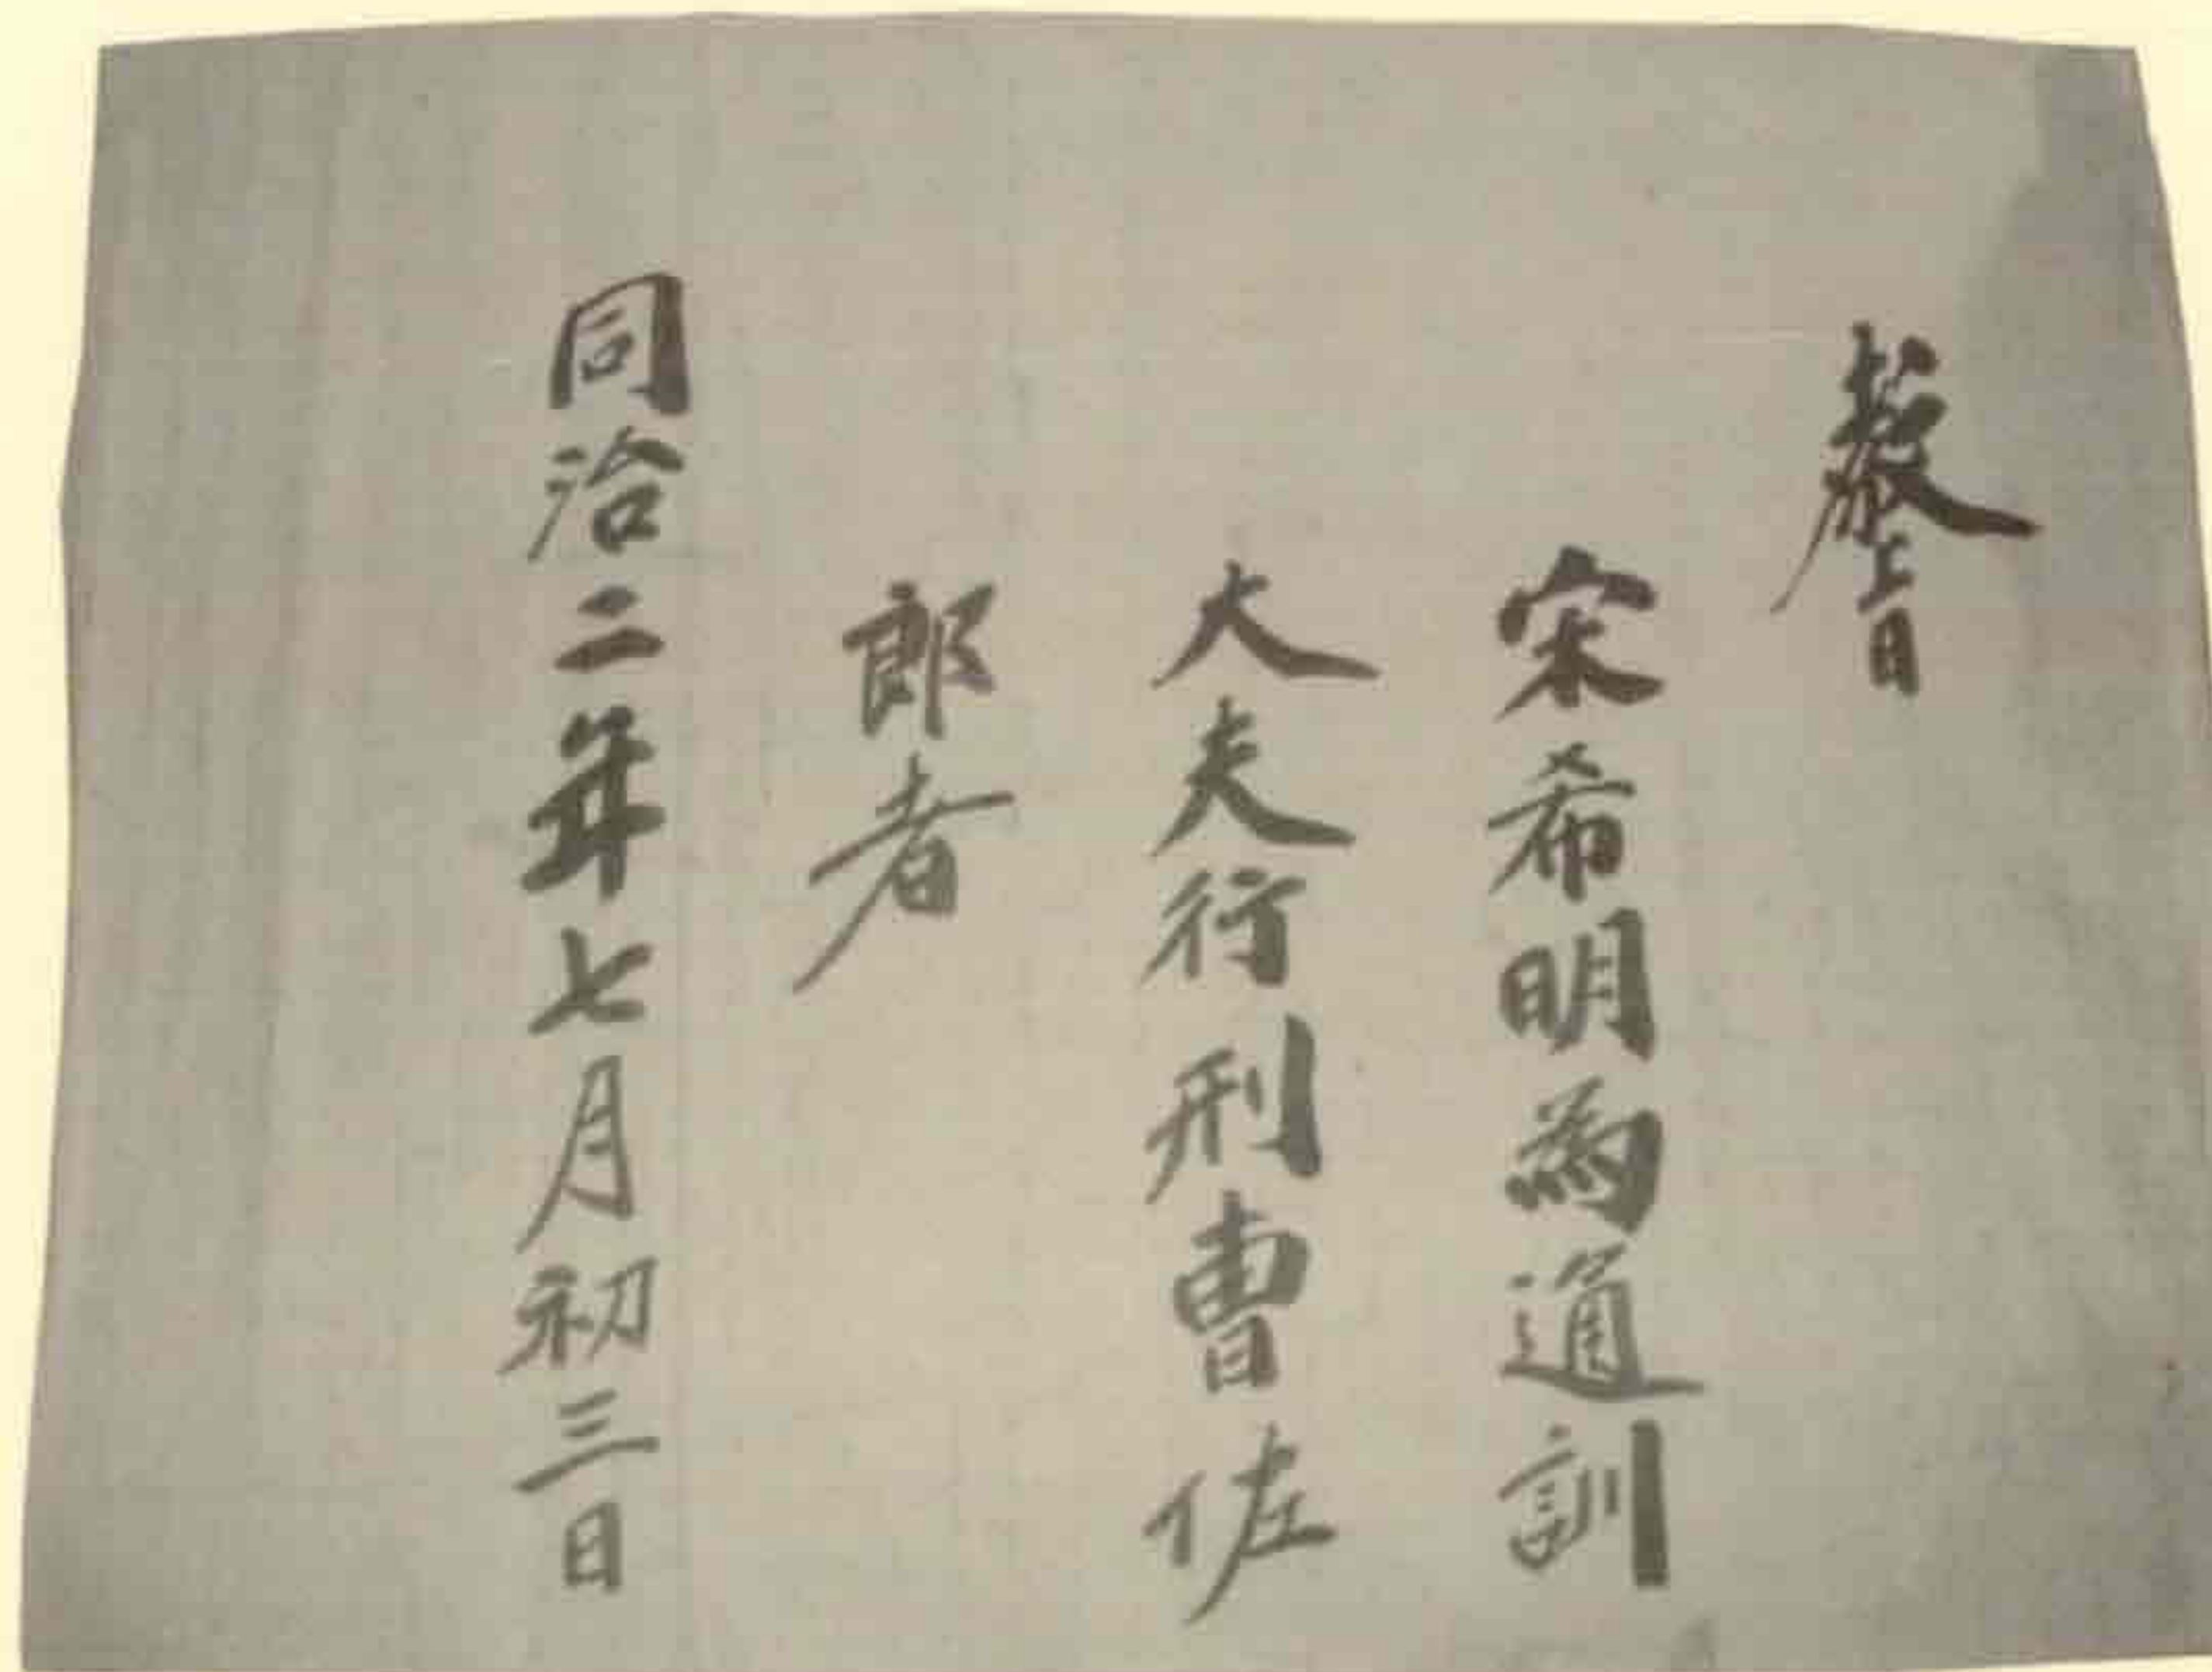 敎旨
宋希明爲通訓
大夫行刑曹佐
郎者
同治二年七月初三日